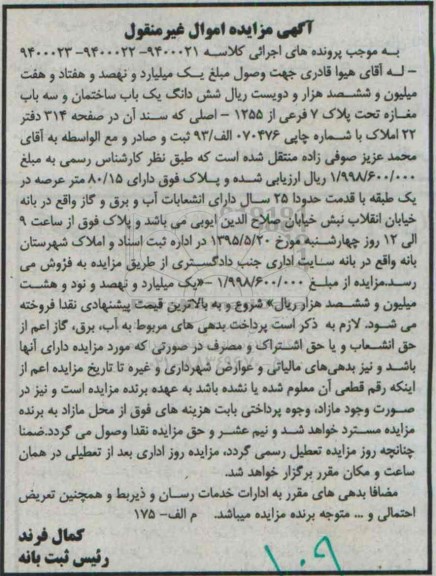 آگهی مزایده اموال غیرمنقول
به موجب پرونده های اجرائی کلاسه ۹۴۰۰۰۲۱- ۹۴۰۰۰۲۲- ۹۴۰۰۰۲۳
- لـه آقای هیوا قادری جهت وصول مبلغ یـک میلیارد و نهصد و هفتاد و هفت
میلیون و ششـصد هزار و دویست ریال شش دانگ یک باب ساختمان و سه باب
مغازه تحت پلاک ۷ فرعی از ۱۲۵۵ - اصلی که سند آن در صفحه ۳۱۴ دفتر
۲۲ املاک با شـماره چاپی ۰۷۰۴۷۶ الف/۹۳ ثبت و صادر و مع الواسطه به آقای
محمد عزیز صوفی زاده منتقل شده است که طبق نظر کارشناس رسمی به مبلغ
۱/۹۹۸/۶۰۰/۰۰۰ ریال ارزیابی شـده و پـلاک فوق دارای ۸۰/۱۵ متر عرصه در
یک طبقه با قدمت حدودا ۲۵ سـال دارای انشعابات آب و برق و گاز واقع در بانه
خیابان انقلاب نبش خیابان صـلاح الدین ایوبی می باشد و پلاک فوق از ساعت ۹
الی ۱۲ روز چهارشـنبه مورخ ۱۳۹۵/۵/۲۰ در اداره ثبت اسناد و املاک شهرستان
بانه واقع در بانه سـایت اداری جنب دادگسـتری از طریق مزایده به فروش می
رسد.مزایده از مبلـغ ۱/۹۹۸/۶۰۰/۰۰۰ -«یک میلیارد و نهصد و نود و هشـت
میلیون و ششـصد هزار ریال» شروع و به بالاترین قیمت پیشنهادی نقدا فروخته
می شـود. لازم به ذکر است پرداخت بدهی های مربوط به آب، برق، گاز اعم از
حق انشـعاب و یا حق اشـتراک و مصرف در صورتی که مورد مزایده دارای آنها
باشـد و نیز بدهی‌های مالیاتی و عوارض شهرداری و غیره تا تاریخ مزایده اعم از
اینکه رقم قطعی آن معلوم شده یا نشده باشد به عهده برنده مزایده است و نیز در
صـورت وجود مازاد، وجوه پرداختی بابت هزینه های فوق از محل مازاد به برنده
مزایده مسـترد خواهد شـد و نیم عشـر و حق مزایده نقدا وصول می گردد.ضمنا
چنانچه روز مزایده تعطیل رسمی گردد، مزایده روز اداری بعد از تعطیلی در همان
ساعت و مکان مقرر برگزار خواهد شد.
مضافا بدهی های مقرر به ادارات خدمات رسـان و ذیربط و همچنین تعریض
احتمالی و ... متوجه برنده مزایده میباشد. م الف- ۱۷۵
کمال فرند
رئیس ثبت بانه
۱۰۹